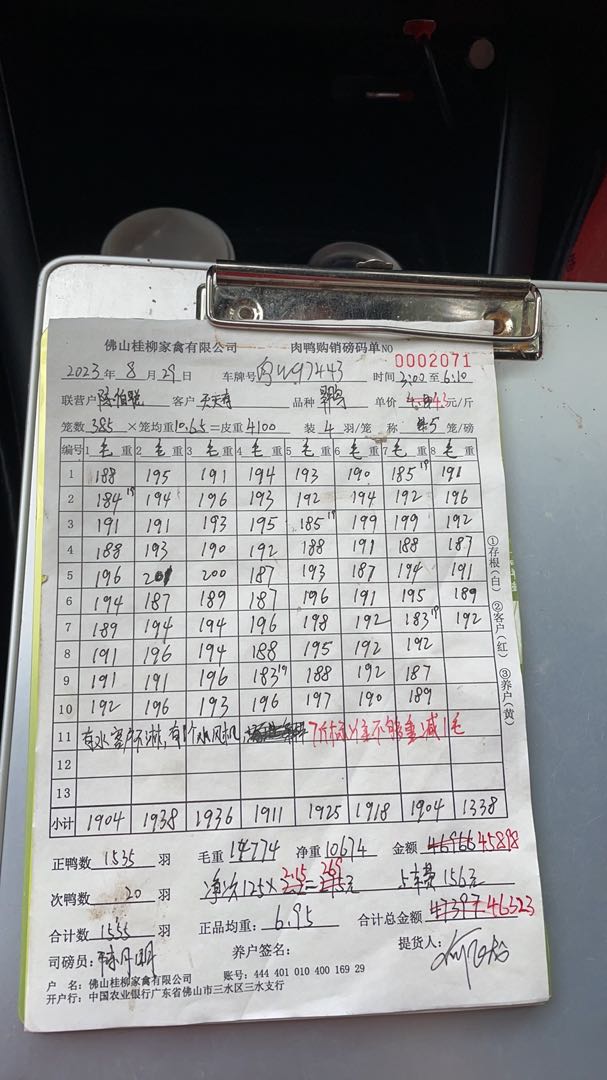 佛山桂柳家禽有限公司 肉鸭购销磅码单NO 0002071
2023年8月29日 车牌号 97443 时间 3:00至6:10
联营户 陈伯 客户 品种 单价 4.3元/斤
笼数 385 ×笼均重10.65=皮重4100 装4羽/笼 称5笼/磅
编号 1毛重 2毛重 3毛重 4毛重 5毛重 6毛重 7毛重 8毛重
1 188 195 191 194 193 190 185 19 191
2 184 19 194 196 193 192 194 192 196
3 191 191 193 195 185 19 199 199 192
4 188 193 190 192 188 191 188 187
5 196 201 200 187 193 187 194 191
6 194 187 189 187 196 191 195 189
7 189 194 194 196 198 192 183 19 192
8 191 196 194 188 195 192 192
9 191 191 196 183 19 188 192 187
10 192 196 193 196 197 190 189
11 有水客户不淋,有1个风机 不够重减1毛
12
13
小计 1904 1938 1936 1911 1925 1918 1904 1338
正鸭数 1535 羽 毛重 14774 净重 10674 金额 46966 45898
次鸭数 20 羽 净次125× 2.15 = 269 元 156元
合计数 1555 羽 正品均重: 6.95 合计总金额 47397 46323
司磅员: 养户签名: 提货人:
户 名:佛山桂柳家禽有限公司 账号:444 401 010 400 169 29
开户行:中国农业银行广东省佛山市三水区三水支行
①存根(白) ②客户(红) ③养户(黄)